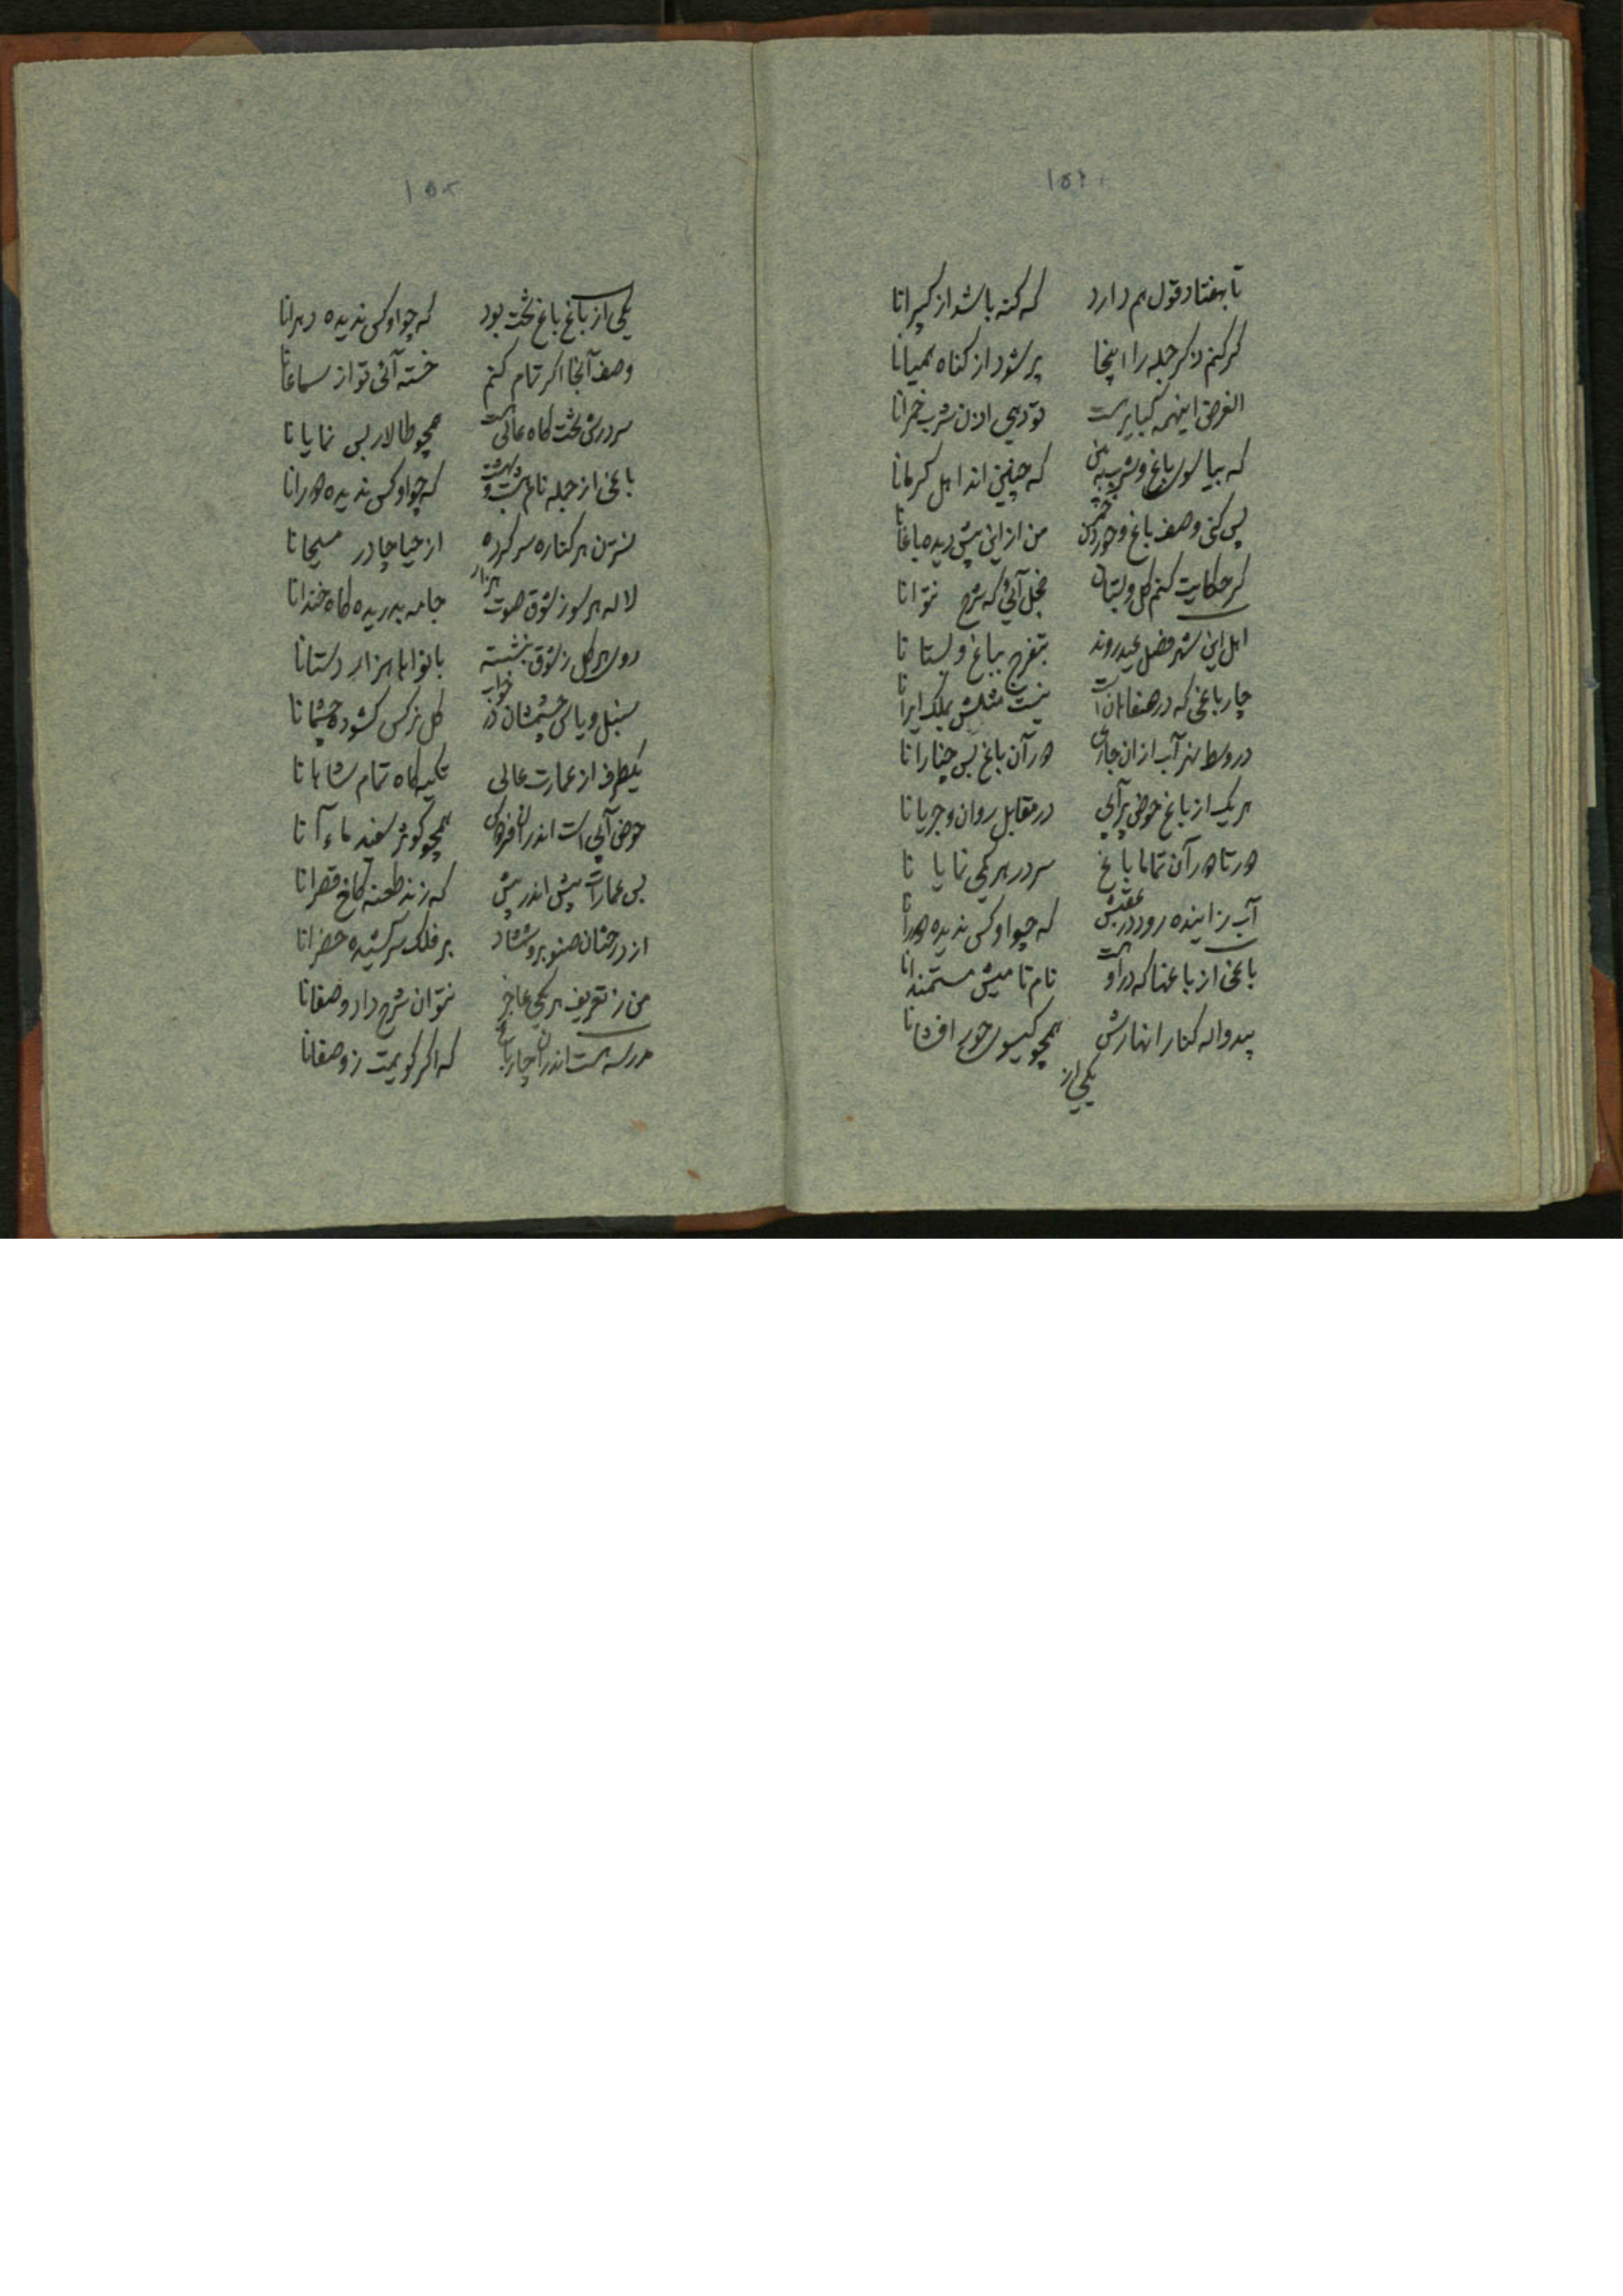 ۱۵۴
تا بهفتاد قول هم دارد که کنه باشد از کپرانا
گر کنم ذکر جمله را اینجا پر شود از گناه همیانا
الغرض اینهمه کبایر است تو دهی اذن شرب خمرانا
که بیا سوی باغ و شرب که چنین اند اهل کرمانا
پس کنی وصف باغ و من از این پیش دیده باغانا
گر حکایت کنم گل و بستان خجل آئی که شرح نتوانا
اهل این شهر فصل عید روند بتفرج بباغ و بستانا
چارباغی که در صفاهان است نیست مثلش بملک ایرانا
در وسط نهر آب از آن جاری اور آن باغ بس چنارانا
هر یک از باغ حوض پر آبی در مقابل روان و جریانا
دور تا دور آن تماما باغ سردر هر یکی نمایانا
آب زاینده رود در عقبش که چو او کس ندیده دورانا
باغی از باغها که در او است نام نامیش مستمندانا
بیدواله کنار انهارش همچو گیسوی حور افشانا
یکی از
۱۵۵
یکی از باغ باغ تخت بود که چو او کس ندیده دهرانا
وصف آنجا اگر تمام کنم خسته آئی تو از سماعانا
سردرش تختگاه عالی است همچو طالار بس نمایانا
باغی از جمله نام هشت بهشت که چو او کس ندیده دورانا
نسترن هر کناره سر کرده از حیا چادر مسیحانا
لاله هر سو ز شوق صوت هزار جامه بدریده گاه خندانا
روی هر گل ز شوق بنشسته با نواها هزار دستانا
سنبل و یاس چشمشان در خواب گل نرگس گشوده چشمانا
یکطرف از عمارت عالی تکیه گاه تمام شاهانا
حوض آبی است اندر آن همچو کوثر سفید ماء آنا
بس عمارات پیش اندر پیش که زند طعنه کاخ قصرانا
از درختان صنوبر و شمشاد بر فلک سر کشیده خضرانا
من ز تعریف هر یکی عاجز نتوان شرح داد وصفانا
مدرسه هست اندر آن چارباغ که اگر گویمت ز وصفانا